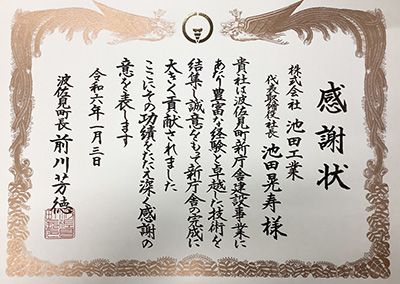 感謝状
株式会社 池田工業
代表取締役社長 池田晃寿 様
貴社は波佐見町新庁舎建設事業に
あたり豊富な経験と卓越した技術を
結集し誠意をもって新庁舎の完成に
大きく貢献されました
ここにその功績をたたえ深く感謝の
意を表します
令和六年一月三日
波佐見町長 前川芳徳